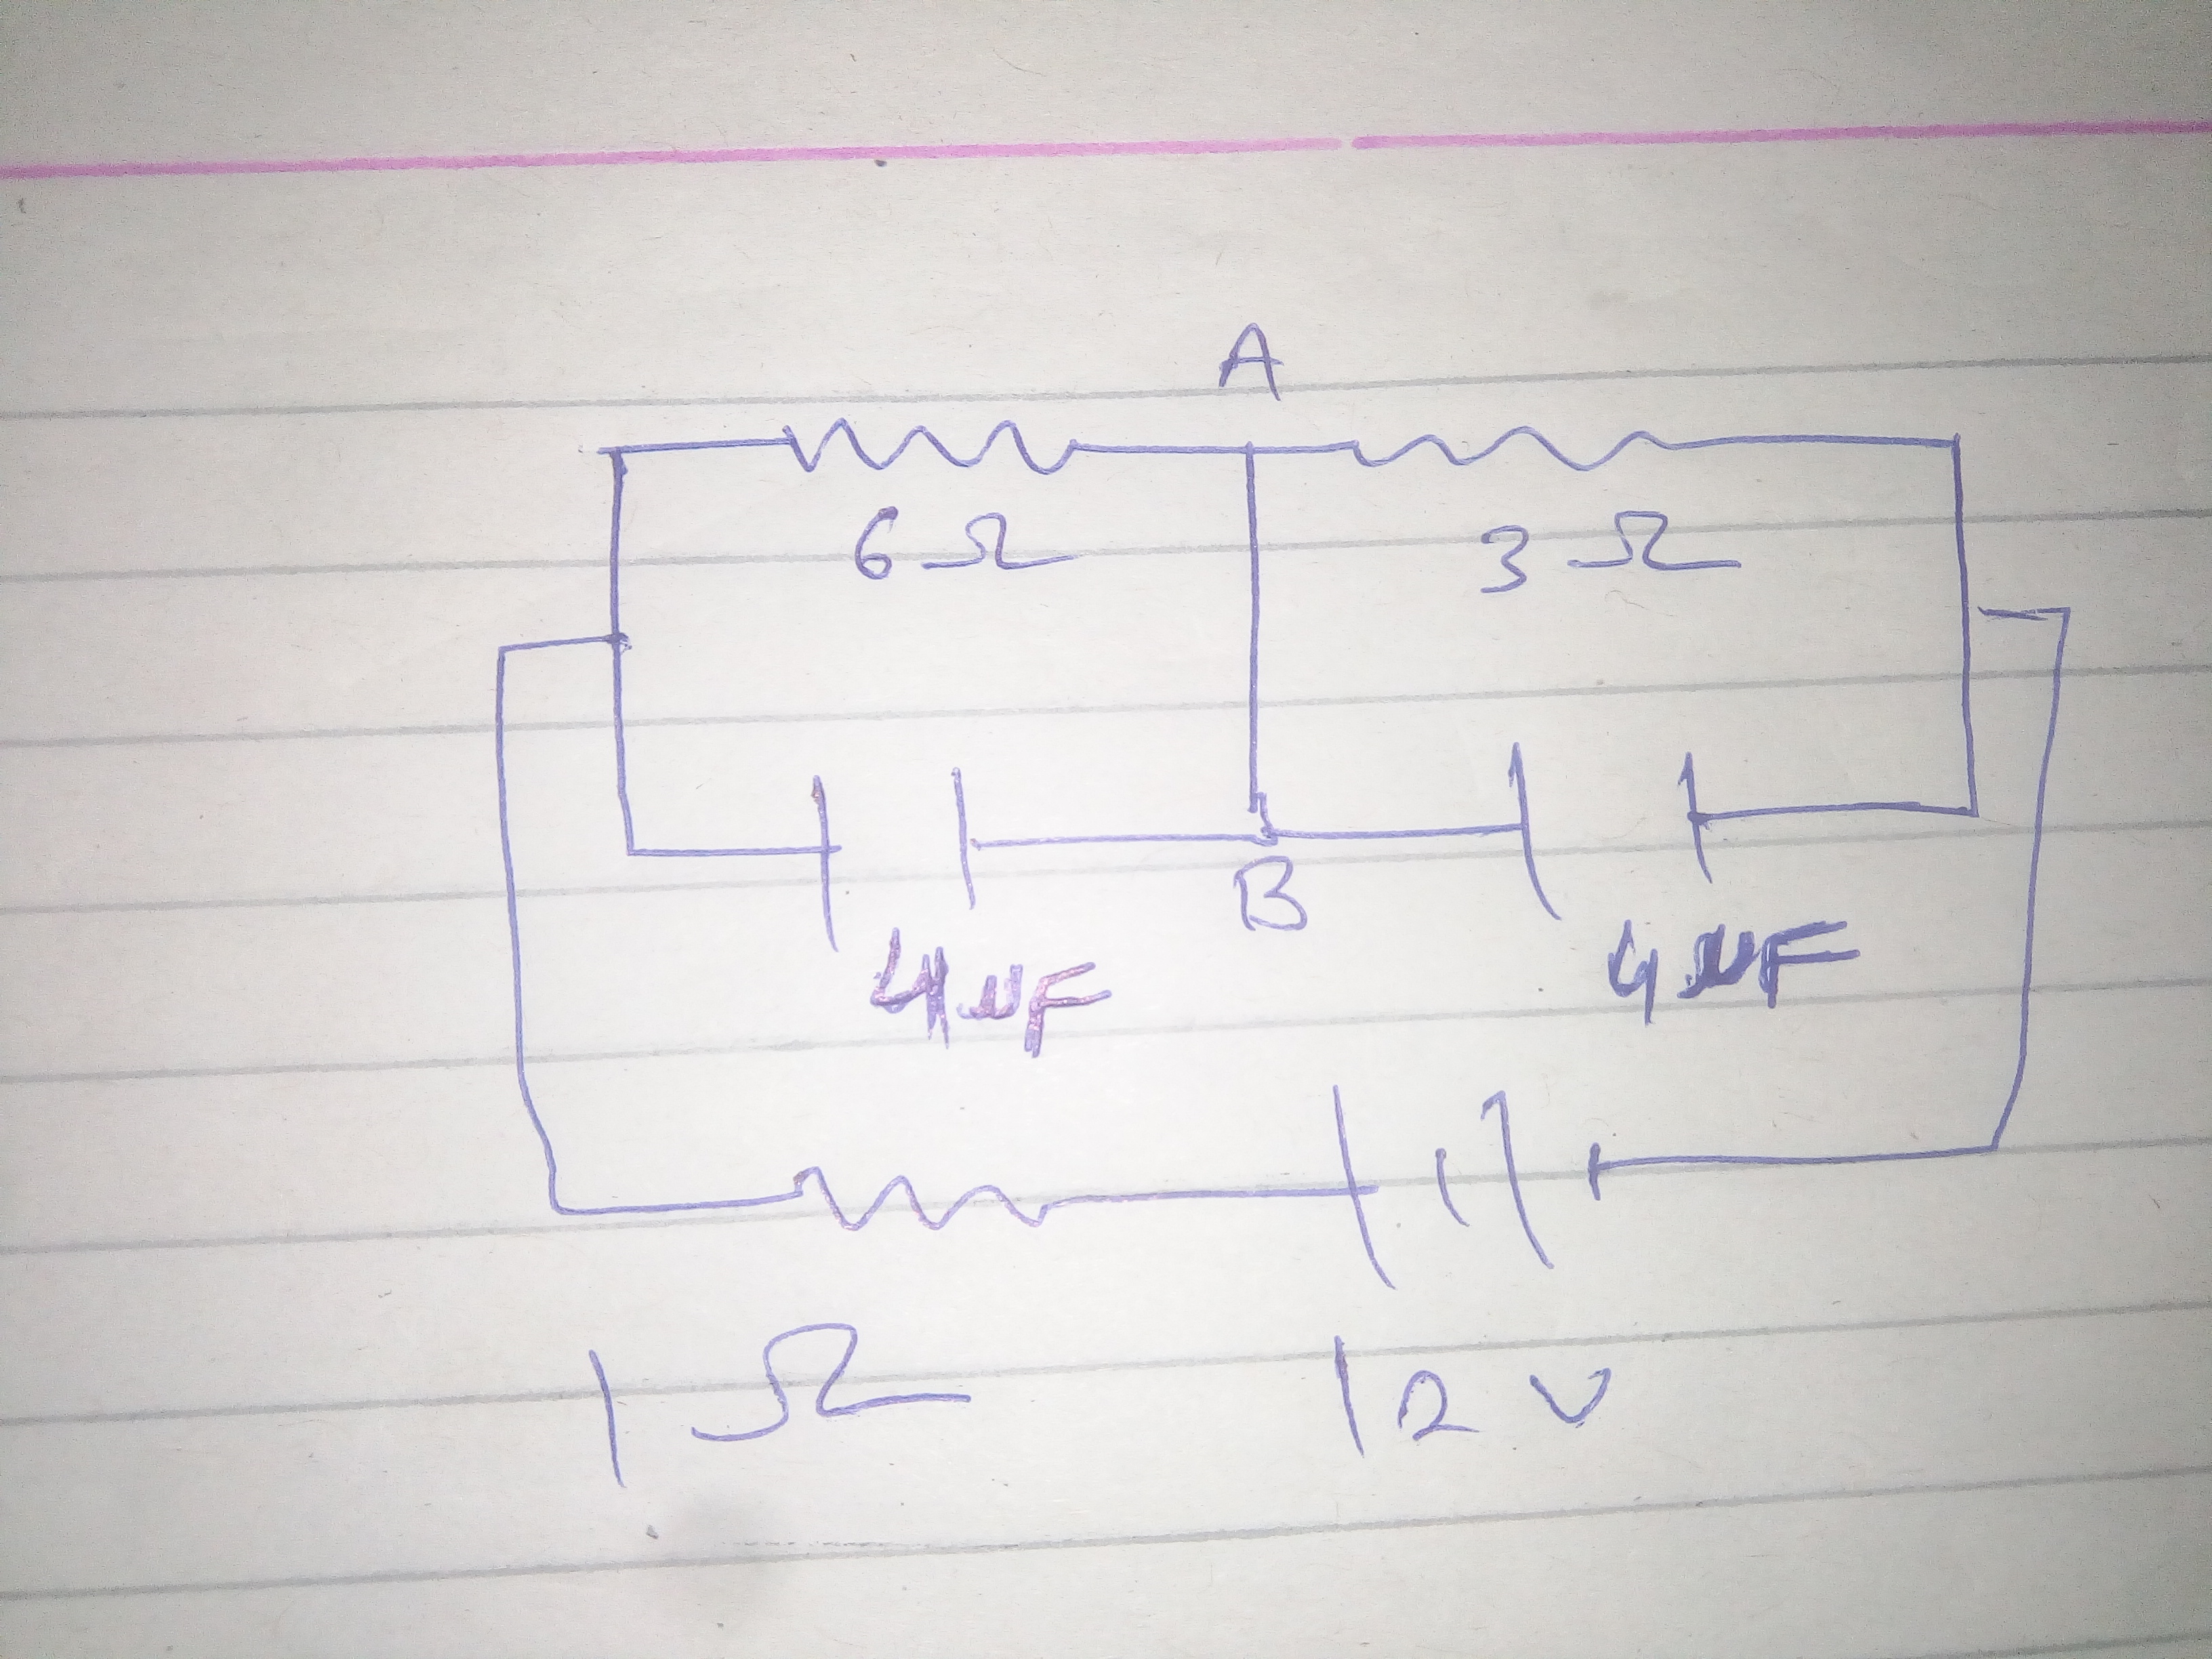 A
6Ω 3Ω
B
4μF 4μF
1Ω 12V